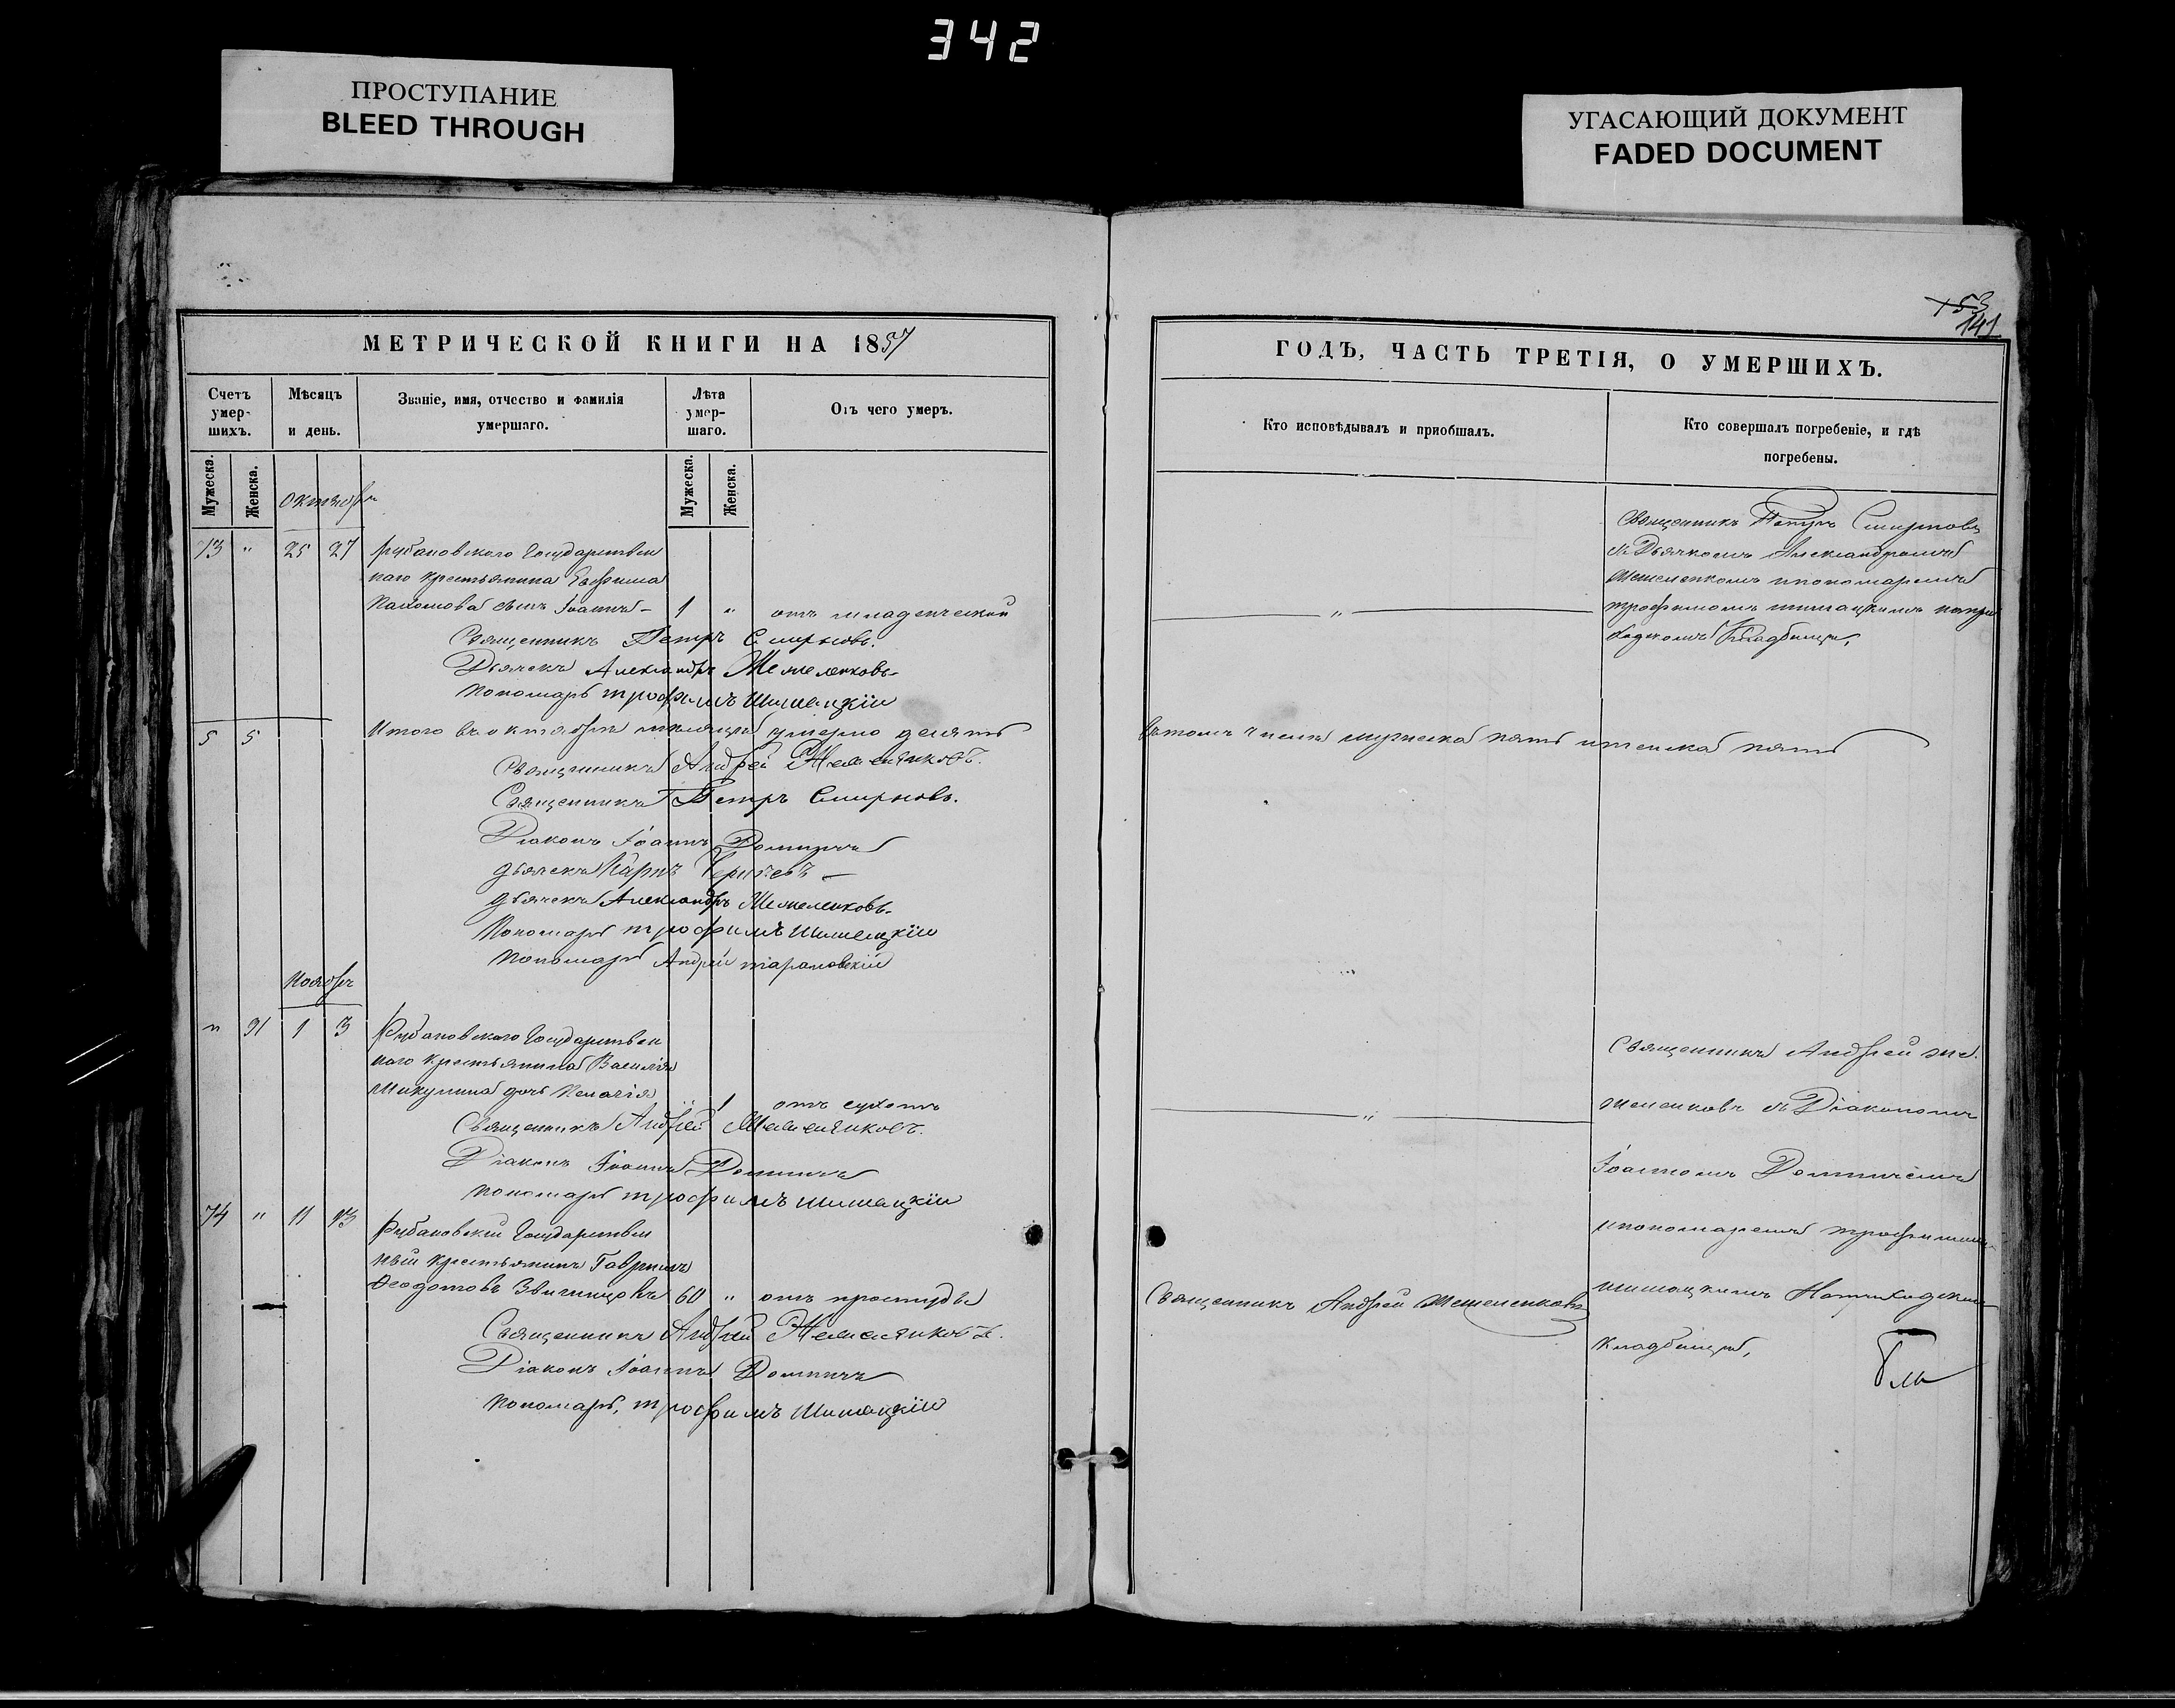 342
ПРОСТУПАНИЕ
BLEED THROUGH
УГАСАЮЩИЙ ДОКУМЕНТ
FADED DOCUMENT
153
141
МЕТРИЧЕСКОЙ КНИГИ НА 1857
Счетъ умер- шихъ.
Мѣсяцъ и день.
Званіе, имя, отчество и фамилія умершаго.
Лѣта умер- шаго.
Отъ чего умеръ.
Мужеска. Женска.
Мужеска. Женска.
октябрь
73 " 25 27 Рубановскаго Государствен
наго крестьянина Евфима
Пахомова сынъ Іоаннъ - 1 " отъ младенческой
Священникъ Петръ Смирновъ.
Дьячекъ Александръ
Пономарь Трофимъ Шишацкій
5 5 Итого въ октябрѣ мѣсяцѣ умерло десять
Священникъ Андрей
Священникъ Петръ Смирновъ.
Діаконъ Іоаннъ
дьячекъ Карпъ
дьячекъ Александръ
Пономарь Трофимъ Шишацкій
Пономарь Андрей Тарановскій
Ноябрь
" 91 1 3 Рубановскаго Государствен
наго крестьянина Василія
Микулина дочь Пелагія " 1 отъ сухотъ
Священникъ Андрей
Діаконъ Іоаннъ
Пономарь Трофимъ Шишацкій
74 " 11 13 Рубановскій Государствен
ный крестьянинъ Гавріилъ
Феодотовъ 60 " отъ простуды
Священникъ Андрей
Діаконъ Іоаннъ
Пономарь, Трофимъ Шишацкій
ГОДЪ, ЧАСТЬ ТРЕТІЯ, О УМЕРШИХЪ.
Кто исповѣдывалъ и приобшалъ.
Кто совершалъ погребеніе, и гдѣ погребены.
Священникъ Петръ Смирновъ
съ Дьячкомъ Александромъ
и пономаремъ
Трофимомъ Шишацкимъ на при
ходскомъ Кладбищѣ,
"
въ томъ числѣ мужеска пять и женска пять
Священникъ Андрей
съ Діакономъ
"
Іоанномъ
и пономаремъ Трофимомъ
Шишацкимъ На приходскомъ
кладбищѣ,
Священникъ Андрей